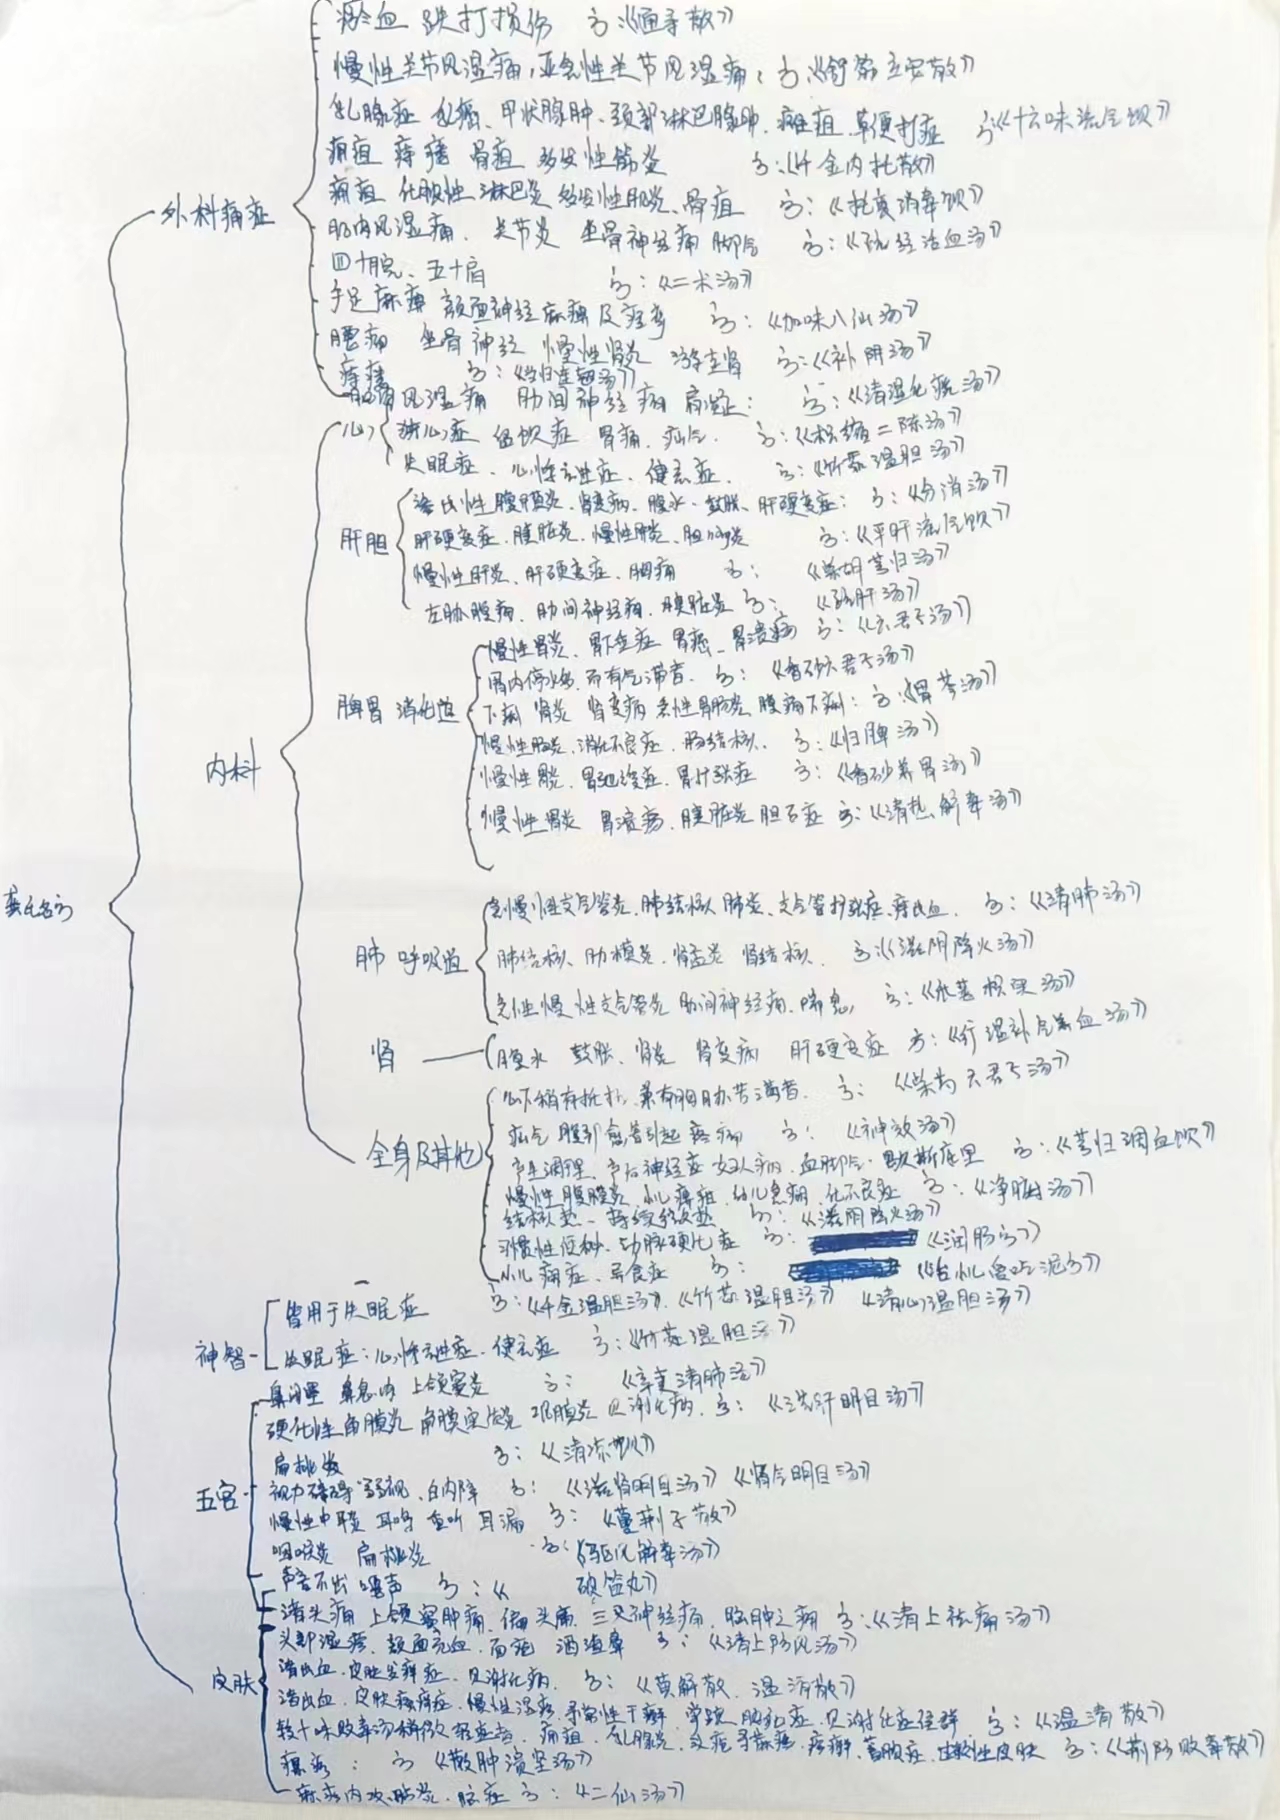 瘀血 跌打损伤 方《通导散》
慢性关节风湿痛,亚急性关节风湿痛: 方:《舒筋立安散》
乳腺症 乳癌、甲状腺肿、颈部淋巴腺肿 痈疽 方《十六味流气饮》
痈疽 痔瘘 骨疽 多发性筋炎 方:《千金内托散》
痈疽 化脓性淋巴炎 多发性肌炎、骨疽 方:《托里消毒饮》
外科痛症
肌肉风湿痛、关节炎 坐骨神经痛 脚气 方:《疏经活血汤》
四十腕、五十肩 方:《二术汤》
手足麻痹 颜面神经麻痹及痉挛 方:《加味八仙汤》
腰痛 坐骨神经 慢性肾炎 游走肾 方:《补阴汤》
痔瘘 方:《当归连翘汤》
肌肉风湿痛 肋间神经痛 肩凝症: 方:《清湿化痰汤》
心
狭心症 留饮症 胃痛、疝气、 方:《枳缩二陈汤》
失眠症、心悸亢进症、健忘症、 方:《竹茹温胆汤》
渗出性腹膜炎、肾变病、腹水、鼓胀、肝硬变症: 方:《分消汤》
肝胆
肝硬变症、胰脏炎、慢性肝炎、胆囊炎 方:《平肝流气饮》
慢性肝炎、肝硬变症、胸痛 方: 《柴胡芎归汤》
左胁腹痛、肋间神经痛、胰脏炎 方: 《疏肝汤》
慢性胃炎、胃下垂症 胃癌、胃溃疡 方:《六君子汤》
胃内停水多,而有气滞者、 方:《香砂六君子汤》
脾胃 消化道
下痢 肾炎 肾变病 急性胃肠炎 腹痛下痢: 方:《胃苓汤》
慢性肠炎、消化不良症、肠结核、 方:《归脾汤》
内科
慢性胃炎、胃弛缓症、胃扩张症 方:《香砂养胃汤》
慢性胃炎 胃溃疡、胰脏炎 胆石症 方:《清热解毒汤》
龚氏名方
急慢性支气管炎、肺结核 肺炎、支气管扩张症、痔出血、 方:《清肺汤》
肺 呼吸道
肺结核、肋膜炎、肾盂炎 肾结核、 方:《滋阴降火汤》
急性慢性支气管炎 肋间神经痛、喘息, 方:《瓜蒌枳实汤》
肾
腹水 鼓胀、肾炎 肾变病 肝硬变症 方:《行湿补气养血汤》
心下稍有抵抗、兼有胸胁苦满者、 方: 《柴芍六君子汤》
疝气 方: 《神效汤》
全身及其他
产生调理、产后神经症 妇人病、血脚气、歇斯底里 方:《芎归调血饮》
慢性腹膜炎 小儿 方:《净腑汤》
结核热、持续 热 方:《滋阴降火汤》
习惯性便秘、动脉硬化症 方: 《润肠方》
小儿 症、异食症 方: 《治小儿食吃泥方》
皆用于失眠症 方:《千金温胆汤》、《竹茹温胆汤》 《清心温胆汤》
神智
失眠症:心悸亢进症、健忘症 方:《竹茹温胆汤》
鼻闭塞 鼻息肉 上颌窦炎 方: 《辛夷清肺汤》
硬化性角膜炎 角膜实质炎 方:《洗肝明目汤》
扁桃炎 方:《清凉散》
五官
视力障碍 弱视、白内障 方: 《滋肾明目汤》《肾气明目汤》
慢性中耳炎 耳鸣 重听 耳漏 方: 《蔓荆子散》
咽喉炎 扁桃炎 方:《驱风解毒汤》
声音不出 嘎声 方:《 破笛丸》
诸头痛 上颌窦肿痛、偏头痛、三叉神经痛、脑肿之痛 方:《清上祛痛汤》
头部湿疹、颜面充血、面疱 酒渣鼻 方:《清上防风汤》
皮肤
诸出血、皮肤发痒症、见谢化病、 方:《黄解散、温清散》
诸出血、皮肤瘙痒症、慢性湿疹、寻常性干癣、 见谢化症侯群 方:《温清散》
较十味败毒汤稍 痈疽、乳腺炎、 疥癣、蓄脓症、 皮肤 方:《荆防败毒散》
瘰疬: 方 《散肿溃坚汤》
麻疹内攻、脑炎、脑症 方:《二仙汤》